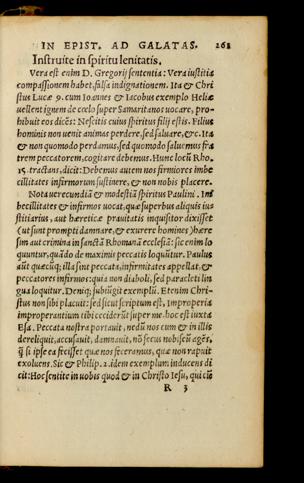 IN EPIST. AD GALATAS. 261
Instruite in spiritu lenitatis.
Vera est enim D. Gregorij sententia: Vera iustitia
compassionem habet, falsa indignationem. Ita & Chri
stus Lucæ 9. cum Ioannes & Iacobus exemplo Heliæ
uellent ignem de cœlo super Samaritanos uocare, pro-
hibuit eos dicẽs: Nescitis cuius spiritus filij estis. Filius
hominis non uenit animas perdere, sed saluare, &c. Ita
& non quomodo perdamus, sed quomodo saluemus fra
trem peccatorem, cogitare debemus. Hunc locũ Rho.
15. tractans, dicit: Debemus autem nos firmiores imbe
cillitates infirmorum sustinere, & non nobis placere.
Nota uerecundiã & modestiã spiritus Paulini. Im
becillitates & infirmos uocat, quæ superbus aliquis iu-
stitiarius, aut hæreticæ prauitatis inquisitor dixisset
(ut sunt prompti damnare, & exurere homines) hære
sim aut crimina in sanctã Rhomanã ecclesiã: sic enim lo
quuntur, quãdo de maximis peccatis loquũtur. Paulus
aũt quæcũq; illa sint peccata, infirmitates appellat, &
peccatores infirmos: quia non diaboli, sed paracleti lin
gua loquitur. Deniq; subiũgit exemplũ. Etenim Chri-
stus non sibi placuit: sed sicut scriptum est, Improperia
improperantium tibi ceciderũt super me. hoc est iuxta
Esa. Peccata nostra portauit, nedũ nos cum & in illis
dereliquit, accusauit, damnauit, nõ secus nobiscũ agẽs,
q̃ si ipse ea fecisset quæ nos feceramus, quæ non rapuit
exoluens. Sic & Philip. 2. idem exemplum inducens di
cit: Hoc sentite in uobis quod & in Christo Iesu, qui cũ
R 3